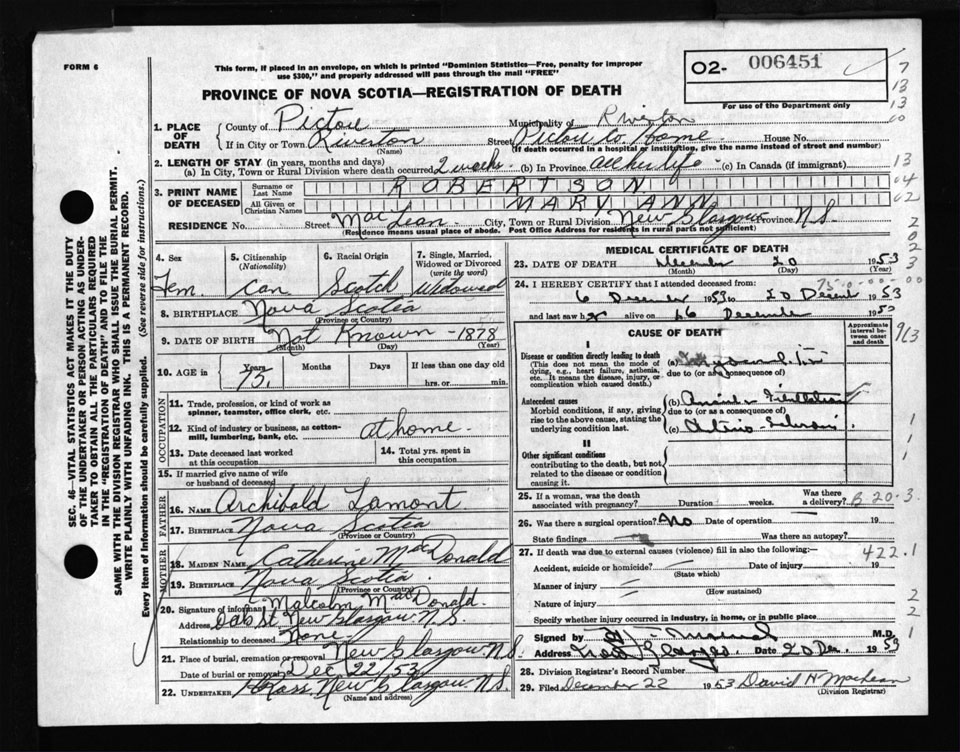 FORM 6
This form, if placed in an envelope, on which is printed "Dominion Statistics—Free, penalty for improper
use $300," and properly addressed will pass through the mail "FREE"
O2- 006451
PROVINCE OF NOVA SCOTIA—REGISTRATION OF DEATH
For use of the Department only
1. PLACE OF DEATH
County of Pictou Municipality of Riverton
If in City or Town Riverton Street Pictou Co. Home House No.
(Name) (If death occurred in a hospital or institution, give name instead of street and number)
2. LENGTH OF STAY (in years, months and days)
(a) In City, Town or Rural Division where death occurred 2 weeks (b) In Province all her life (c) In Canada (if immigrant)
3. PRINT NAME OF DECEASED
Surname or Last Name ROBERTSON
All Given or Christian Names MARY ANN
RESIDENCE No. Street MacLean City, Town or Rural Division New Glasgow Province N.S.
(Residence means usual place of abode. Post Office Address for residents in rural parts not sufficient)
4. Sex Fem.
5. Citizenship (Nationality) Can
6. Racial Origin Scotch
7. Single, Married, Widowed or Divorced (write the word) Widowed
8. BIRTHPLACE Nova Scotia
(Province or Country)
9. DATE OF BIRTH Not Known - 1878
(Month) (Day) (Year)
10. AGE in Years 75 Months Days If less than one day old
hrs. or min.
OCCUPATION
11. Trade, profession, or kind of work as
spinner, teamster, office clerk, etc.
12. Kind of industry or business, as cotton-
mill, lumbering, bank, etc. at home.
13. Date deceased last worked
at this occupation
14. Total yrs. spent in
this occupation
15. If married give name of wife
or husband of deceased
FATHER
16. NAME Archibald Lamont
17. BIRTHPLACE Nova Scotia
(Province or Country)
MOTHER
18. MAIDEN NAME Catherine MacDonald
19. BIRTHPLACE Nova Scotia.
(Province or Country)
20. Signature of informant Malcolm MacDonald.
Address St. New Glasgow N.S.
Relationship to deceased None.
21. Place of burial, cremation or removal New Glasgow N.S.
Date of burial or removal Dec 22/53
22. UNDERTAKER New Glasgow N.S.
(Name and address)
MEDICAL CERTIFICATE OF DEATH
23. DATE OF DEATH December 20 1953
(Month) (Day) (Year)
24. I HEREBY CERTIFY that I attended deceased from:
6 December 1953 to 20 1953
and last saw her alive on December 1953
CAUSE OF DEATH
Approximate interval between onset and death
I
Disease or condition directly leading to death
(This does not mean the mode of
dying, e.g., heart failure, asthenia,
etc. It means the disease, injury, or
complication which caused death.)
(a)
due to (or as a consequence of)
Antecedent causes
Morbid conditions, if any, giving
rise to the above cause, stating the
underlying condition last.
(b)
due to (or as a consequence of)
(c)
II
Other significant conditions
contributing to the death, but not
related to the disease or condition
causing it.
25. If a woman, was the death
associated with pregnancy? Duration weeks. Was there a delivery?
B 20.3
26. Was there a surgical operation? No Date of operation 19
State findings Was there an autopsy?
27. If death was due to external causes (violence) fill in also the following:—
422.1
Accident, suicide or homicide? Date of injury 19
(State which)
Manner of injury
(How sustained)
Nature of injury
Specify whether injury occurred in industry, in home, or in public place
Signed by M.D.
Address New Glasgow Date 20 Dec. 1953
28. Division Registrar's Record Number
29. Filed December 22 1953 David H MacLean
(Division Registrar)
SEC. 46—VITAL STATISTICS ACT MAKES IT THE DUTY
OF THE UNDERTAKER OR PERSON ACTING AS UNDER-
TAKER TO OBTAIN ALL THE PARTICULARS REQUIRED
IN THE "REGISTRATION OF DEATH" AND TO FILE THE
SAME WITH THE DIVISION REGISTRAR WHO SHALL ISSUE THE BURIAL PERMIT.
WRITE PLAINLY WITH UNFADING INK. THIS IS A PERMANENT RECORD.
Every item of information should be carefully supplied. (See reverse side for instructions.)